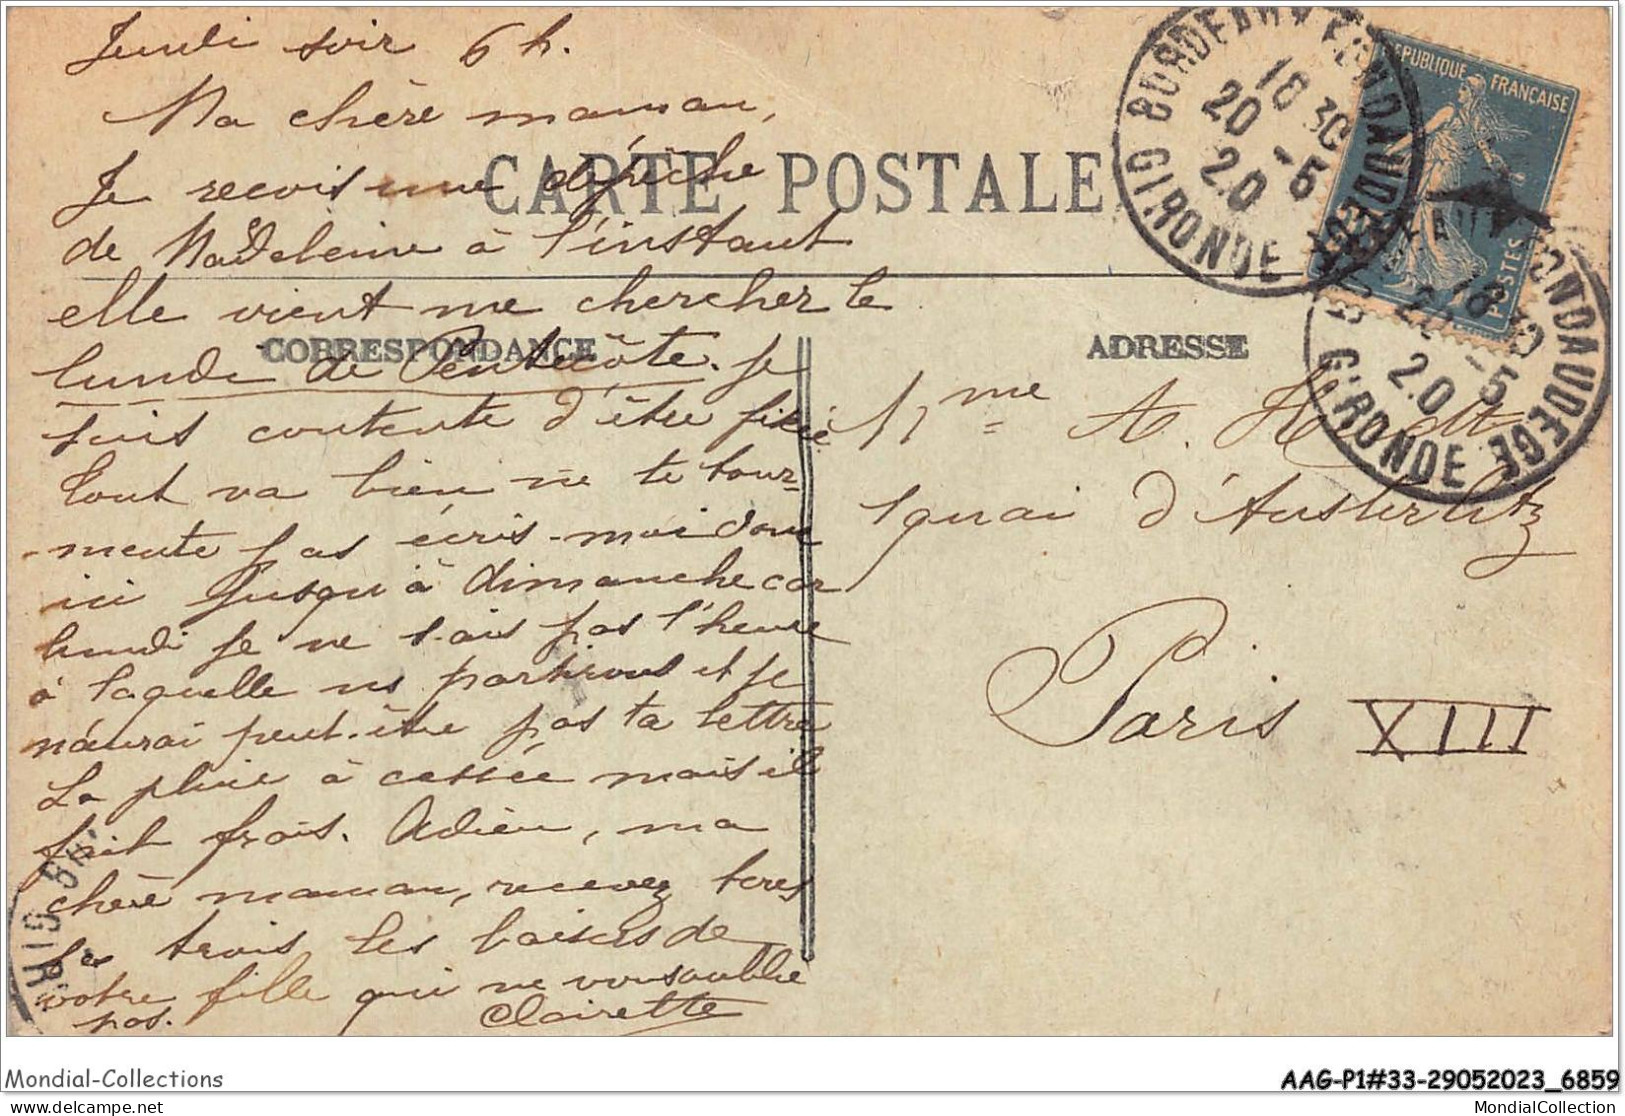 Jeudi soir 6 h.
Ma chère maman,
CARTE POSTALE
Je recois une dépêche
de Madeleine à l'instant
elle vient me chercher le
CORRESPONDANCE
lundi de Pentecôte. Je
suis contente d'être fixée
tout va bien ne te tour-
mente pas écris-moi donc
ici jusqu'à dimanche car
lundi je ne sais pas l'heure
à laquelle ns partirons et je
n'aurai peut-être pas ta lettre
La pluie à cessée mais il
fait frais. Adieu, ma
chère maman, recevez tous
les trois les baisers de
votre fille qui ne vous oublie
pas. Clairette
ADRESSE
Mme A.
1 quai d'Austerlitz
Paris XIII
REPUBLIQUE FRANÇAISE
POSTES
BORDEAUX FONDAUDEGE
18 30
20 -5
20
GIRONDE
FONDAUDEGE
18 30
20 -5
20
GIRONDE
Mondial-Collections
AAG-P1#33-29052023_6859
www.delcampe.net
MondialCollection